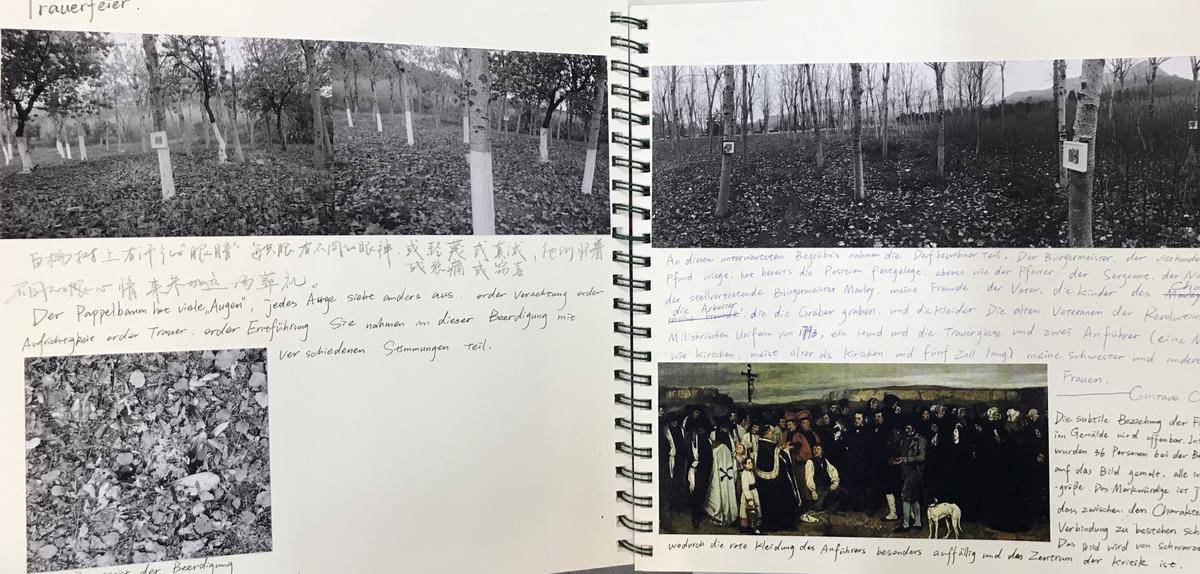 Trauerfeier.
白杨树上有许多"眼睛" 每只眼有不同的眼神. 或轻蔑 或真诚, 他们怀着
或悲痛 或
不同的 心情 来参加这场葬礼。
Der Pappelbaum hat viele „Augen", jedes Auge sieht anders aus. order Verachtung order
Aufrichtigkeit order Trauer. order Entführung Sie nahmen an dieser Beerdigung mit
verschiedenen Stimmungen teil.
der Beerdigung
An diesem unterwarteten Begräbnis nahmen die Dorfbewohner Teil, Der Bürgermeister, der vierhundert
Pfund wiege, hat bereits die Position festgelegt, ebenso wie der Pfarrer, der Sergeant, der
der stellvertretende Bürgermeister Marley, meine Freunde. der Vater, die Kinder des
die Arbeiter
die die Gräber graben, und die Kleider Die alten Veteranen der Revolution
Militärischen Uniform von 1793, ein Hund und die Trauergäste und zwei Anführer (eine
wie Kirschen, meist älter als Kirschen und fünf Zoll lang) meine schwester und andere
Frauen.
Gustave C
Die subtile Beziehung der
im Gemälde wird offenbar. In
wurden 36 Personen bei der
auf das Bild gemalt, alle in
größe. Das Merkwürdige ist
dass zwischen den
Verbindung zu bestehen
Das Bild wird von schwarze
wodurch die rote Kleidung des Anführers besonders auffällig und das Zentrum der Kritik ist.